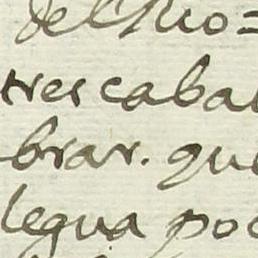 del Rio=
tres cabal
brar. que
legua poc